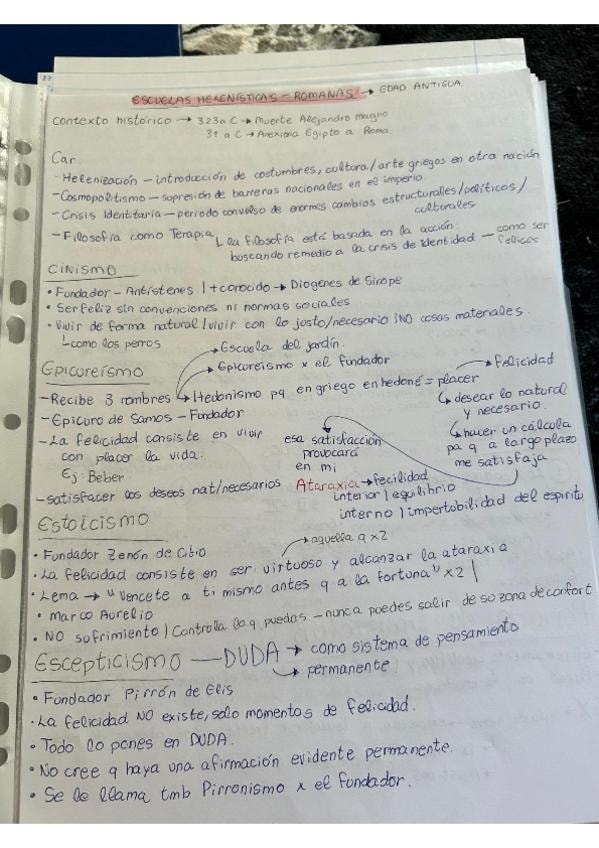 ESCUELAS HELENÍSTICAS - ROMANAS → EDAD ANTIGUA.
Contexto histórico → 323 a C → Muerte Alejandro magno
31 a C → Anexiona Egipto a Roma
Car
- Helenización - introducción de costumbres, cultura/arte griegos en otra nación
- Cosmopolitismo - supresión de barreras nacionales en el imperio
- Crisis Identitaria - periodo convulso de enormes cambios estructurales/políticos/
culturales
- Filosofía como Terapia ↳ la filosofía está basada en la acción.
buscando remedio a la crisis de identidad - como ser
felices
CINISMO
• Fundador - Antístenes / + conocido → Diogenes de Sinope
• Ser feliz sin convenciones ni normas sociales
• Vivir de forma natural / vivir con lo justo/necesario ¡NO cosas materiales.
↳ como los perros
→ Escuela del jardín.
Epicureísmo → Epicureismo x el fundador
- Recibe 3 nombres → Hedonismo pq en griego en hedoné = placer → felicidad
↳ desear lo natural
y necesario.
- Epicuro de Samos - Fundador
↳ hacer un cálculo
pa q a largo plazo
me satisfaja
- La felicidad consiste en vivir
con placer la vida.
Ej: Beber
esa satisfacción
provocará
en mi
- satisfacer los deseos nat/necesarios Ataraxia → fecilidad
interior / equilibrio
interno / impertubilidad del espiritu
Estoicismo
• Fundador Zenón de Citio → aquella q x2
• La felicidad consiste en ser virtuoso y alcanzar la ataraxia
• Lema → "Vencete a ti mismo antes q a la fortuna" x2 |
• Marco Aurelio
• NO sufrimiento / Controla lo q puedas - nunca puedes salir de su zona de confort
Escepticismo — DUDA → como sistema de pensamiento
→ permanente
• Fundador Pirrón de Elis
• La felicidad NO existe, solo momentos de felicidad.
• Todo lo pones en DUDA.
• No cree q haya una afirmación evidente permanente.
• Se le llama tmb Pirronismo x el fundador.